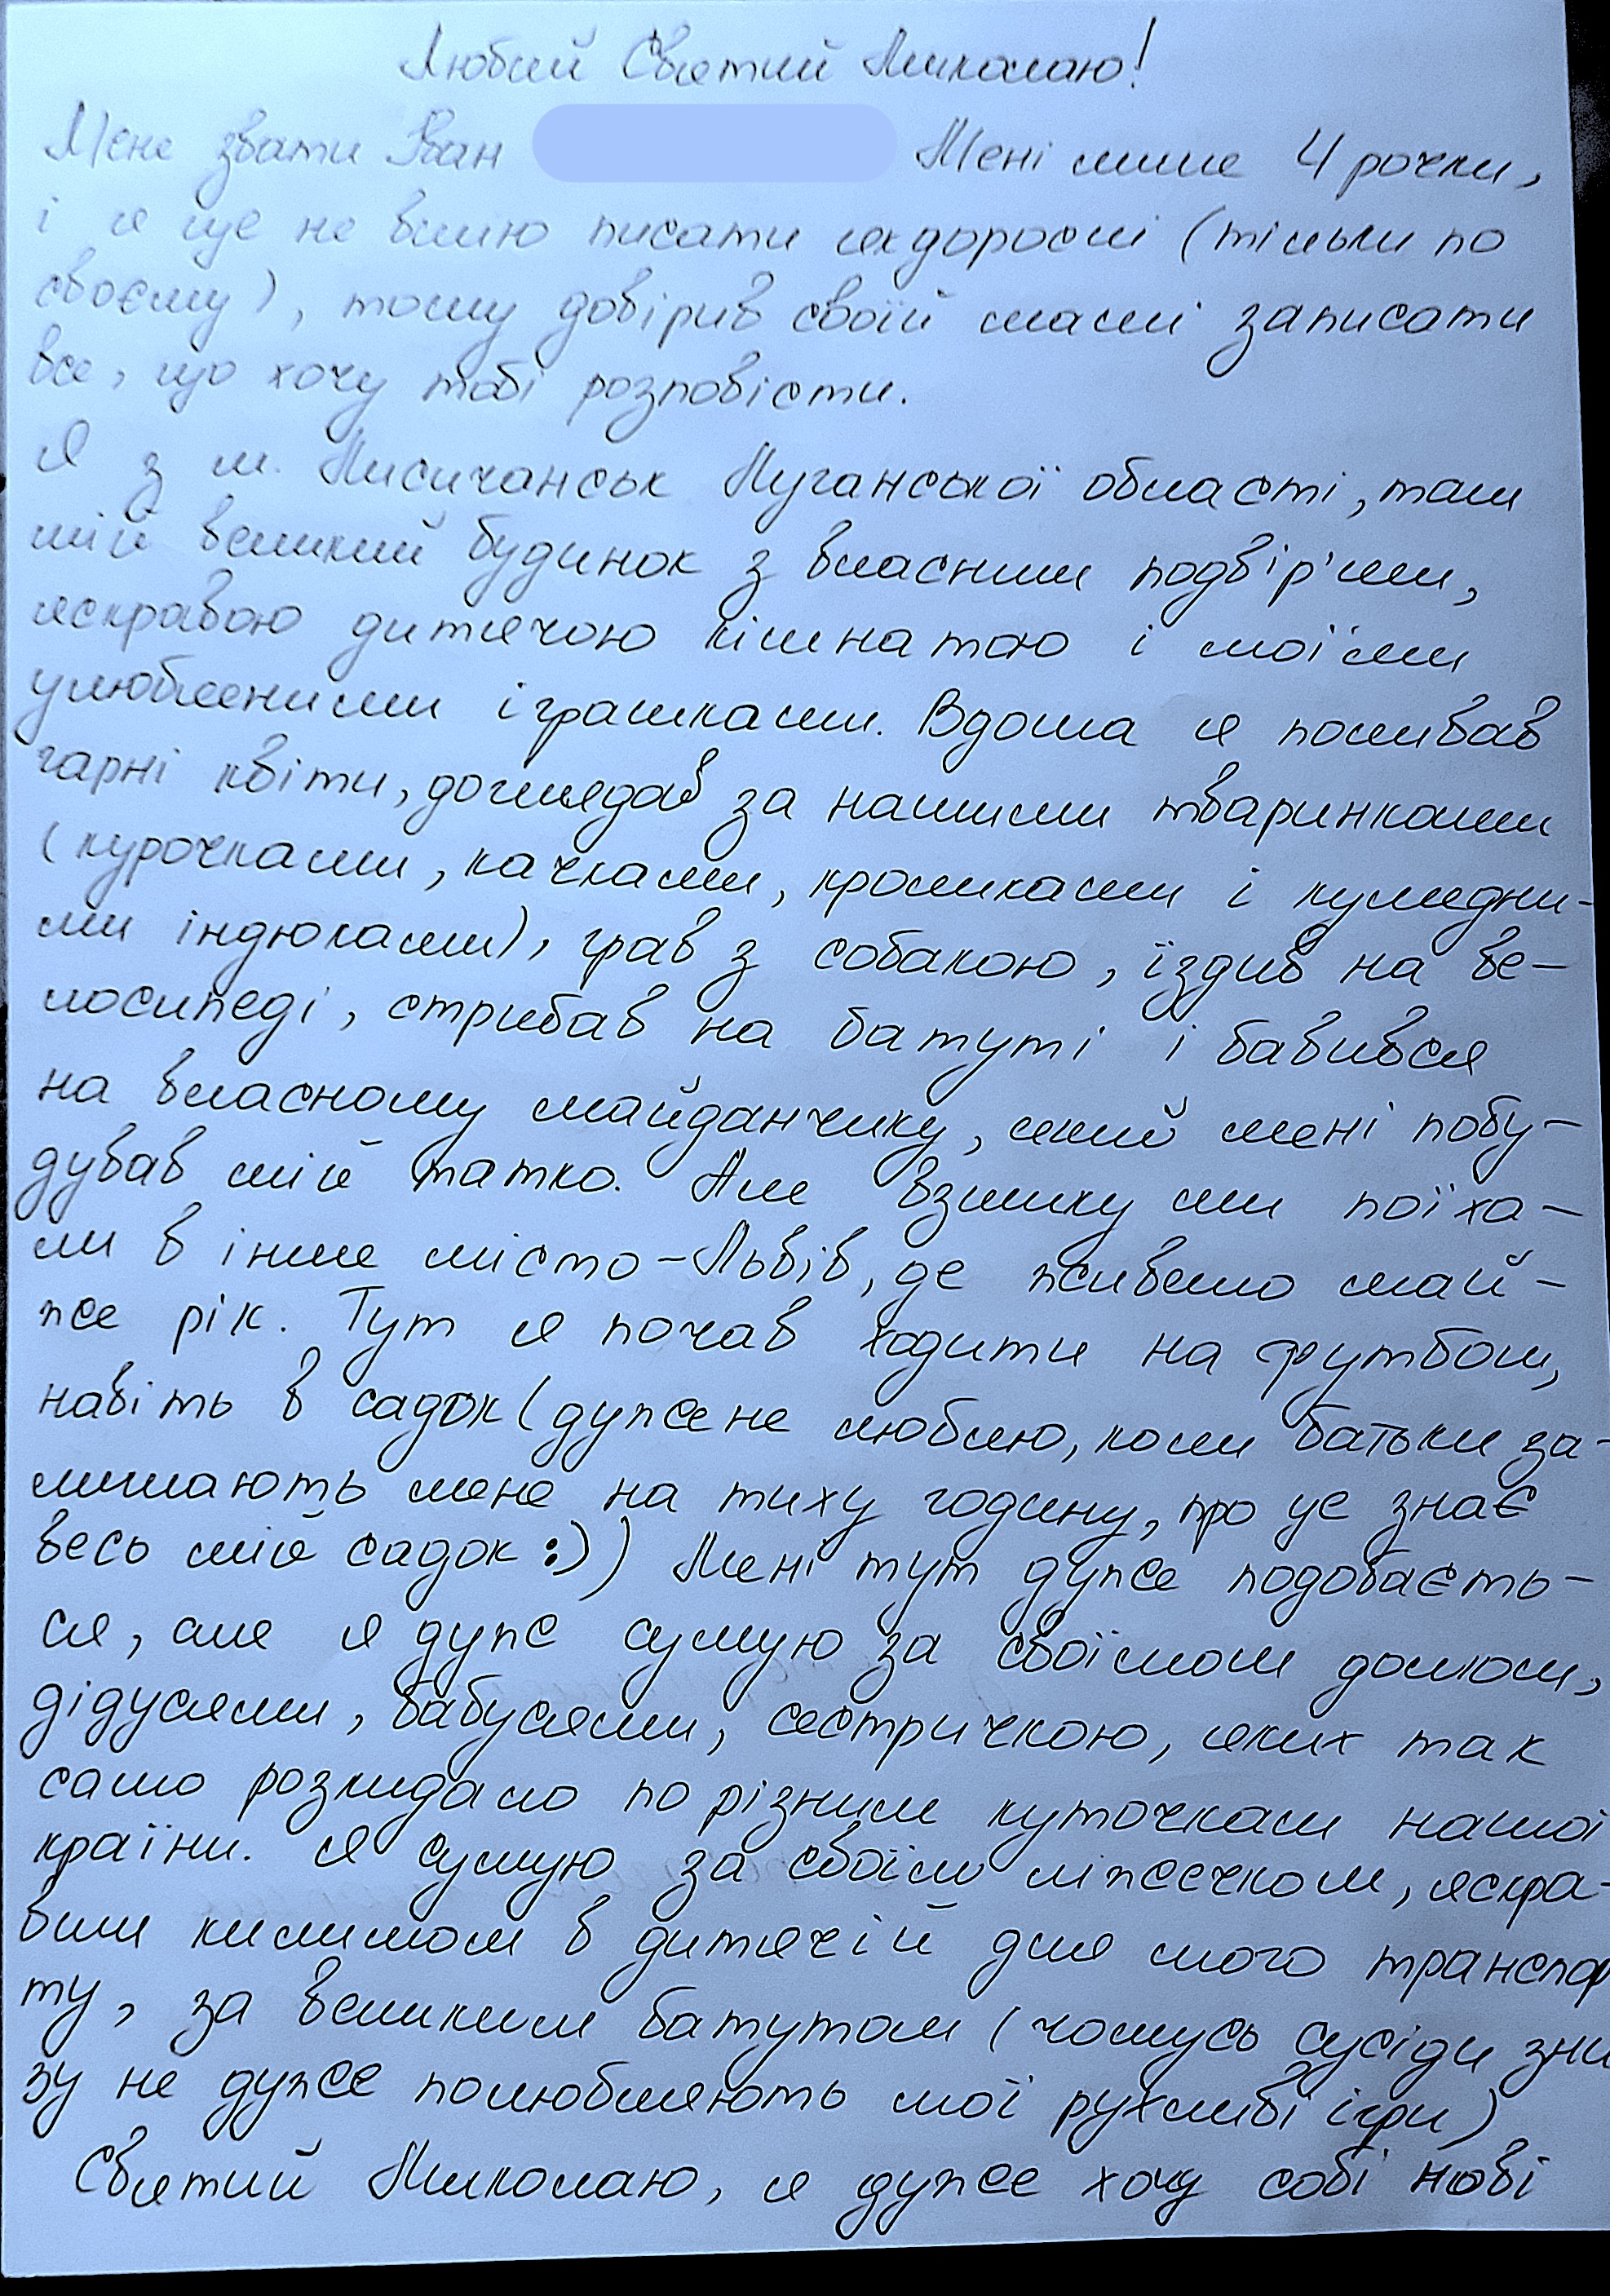 Любий Святий Миколаю!
Мене звати Іван Мені лише 4 рочки,
і я ще не вмію писати як дорослі (тільки по
своєму), тому довірив своїй мамі записати
все, що хочу тобі розповісти.
Я з м. Лисичанськ Луганської області, там
мій великий будинок з власним подвір'ям,
яскравою дитячою кімнатою і моїми
улюбленими іграшками. Вдома я поливав
гарні квіти, доглядав за нашими тваринками
(курочками, качками, кроликами і кумедни-
ми індюками), грав з собакою, їздив на ве-
лосипеді, стрибав на батуті і бавився
на власному майданчику, який мені побу-
дував мій татко. Але взимку ми поїха-
ли в інше місто - Львів, де живемо май-
же рік. Тут я почав ходити на футбол,
навіть в садок (дуже не люблю, коли батьки за-
лишають мене на тиху годину, про це знає
весь мій садок :)) Мені тут дуже подобаєть-
ся, але я дуже сумую за своїмом домом,
дідусями, бабусями, сестричкою, яких так
само розкидало по різним куточкам нашої
країни. Я сумую за своїм ліжечком, яскра-
вим килимом в дитячій для мого транспор
ту, за великим батутом (чомусь сусіди зни
зу не дуже полюбляють мої рухливі ігри)
Святий Миколаю, я дуже хочу собі нові